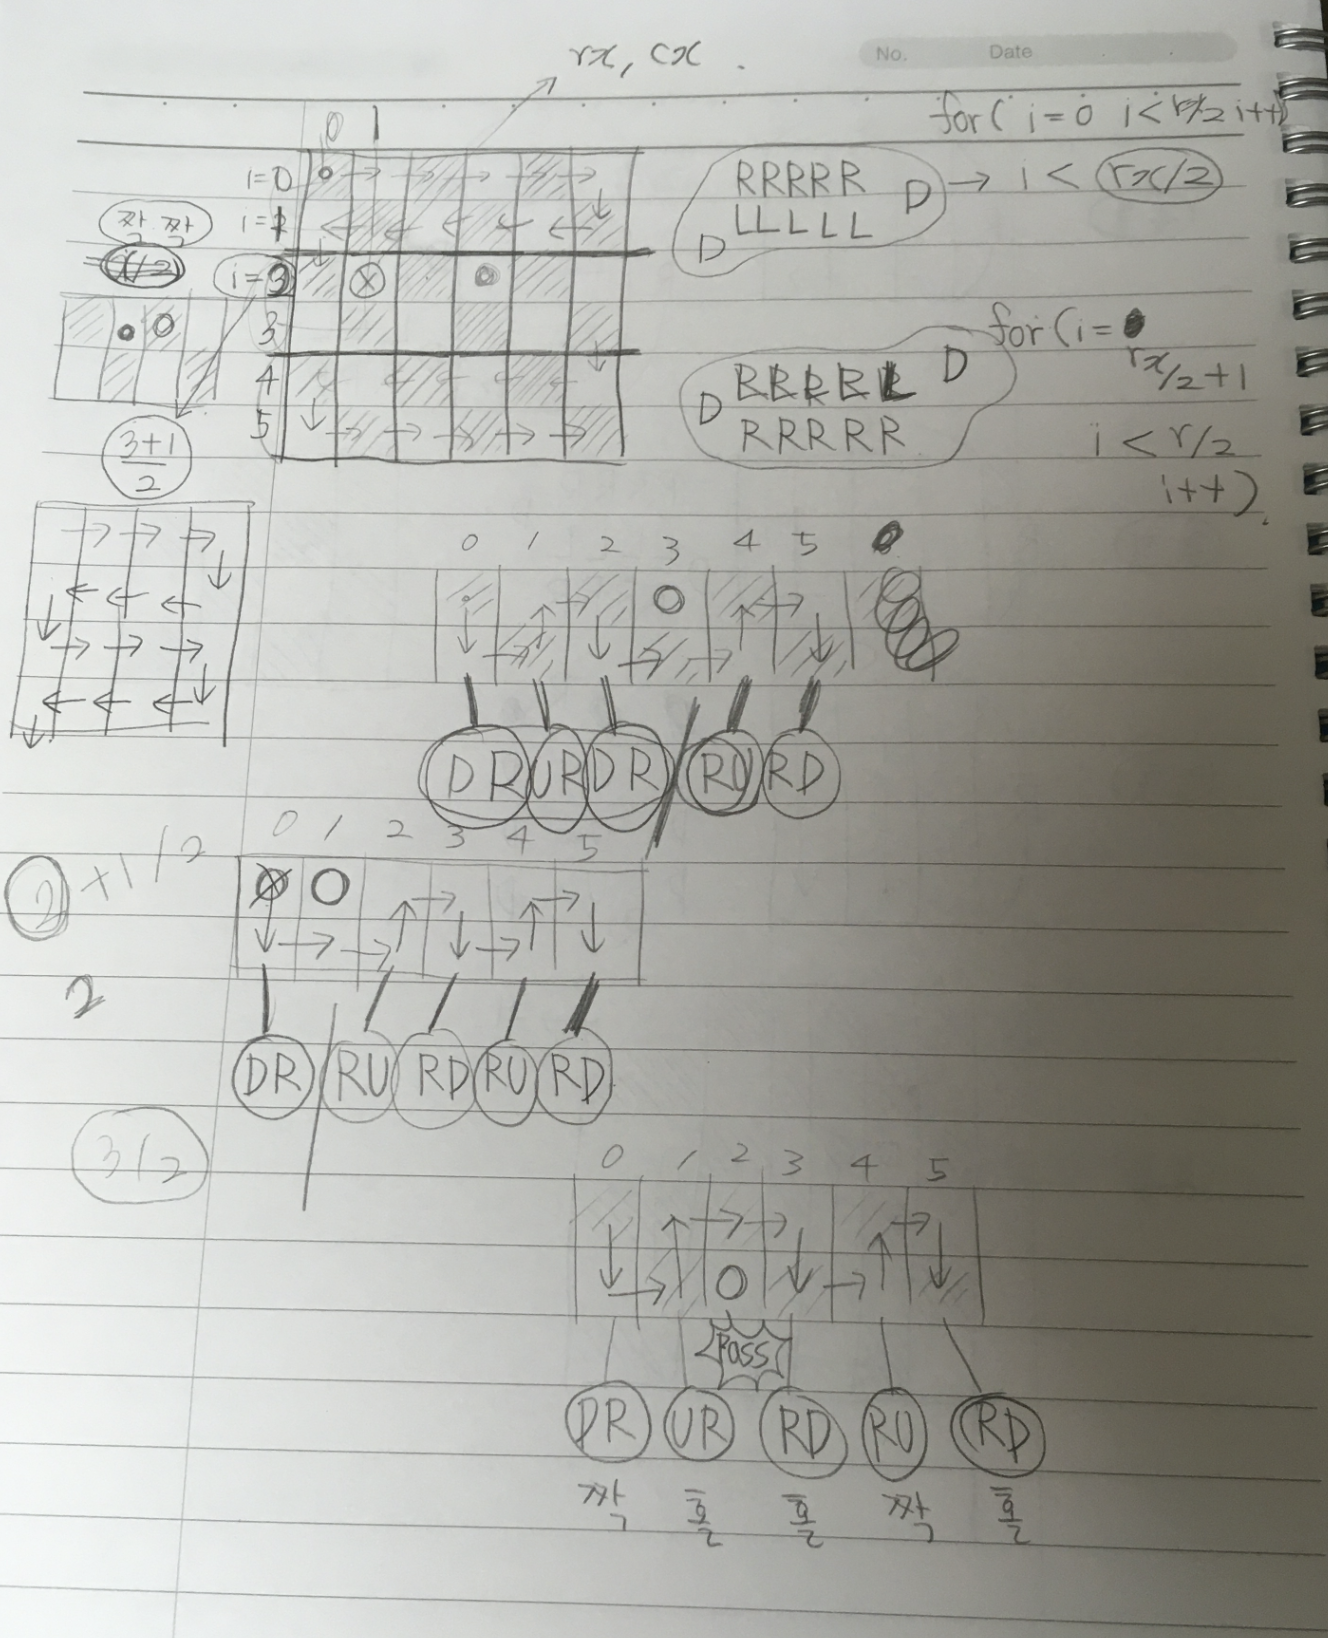 No. Date
rx, cx .
for( i=0 i<r/2 i++)
0 1
i=0
RRRRR D → i < rx/2
i=1
LLLLL
D
짝 짝
i=2
3
for(i=
rx/2+1
4
D
D
5
RRRRR
i < r/2
i++)
3+1
2
0 1 2 3 4 5
DR UR DR RU RD
0 1 2 3 4 5
2 +1/2
2
DR RU RD RU RD
3/2
0 1 2 3 4 5
Pass
DR UR RD RU RD
짝 홀 홀 짝 홀